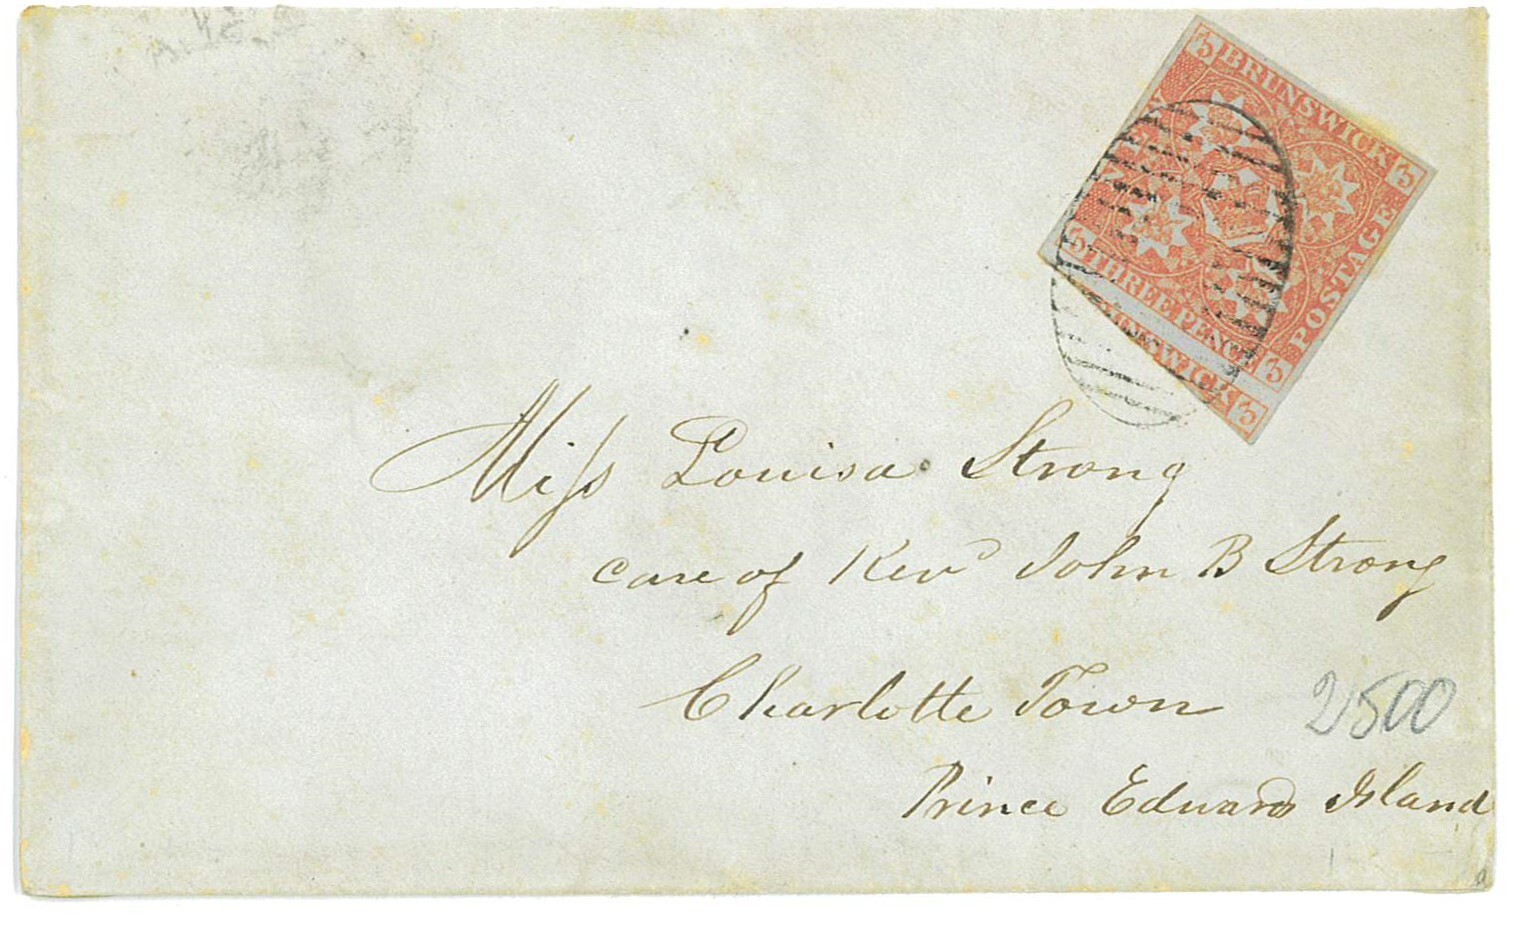 3 BRUNSWICK 3
NEW
POSTAGE
3 THREE PENCE 3
WICK 3
Miss Louisa Strong
care of Revd John B Strong
Charlotte Town
2500
Prince Edward Island